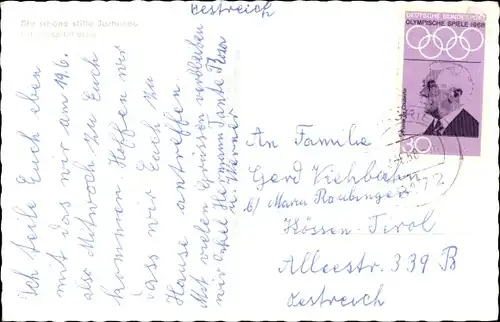 Die schöne stille
Oestreich
Ich teile Euch eben
mit das wir am 19.6.
also Mittwoch zu Euch
kommen Hoffen wir
dass wir Euch zu
Hause antreffen.
Mit vielen Grüssen verbleiben
wir Onkel Hermann Tante Rosa
u. Werner
DEUTSCHE BUNDESPOST
OLYMPISCHE SPIELE 1968
30
An Familie
Gerd Viehbahn
b/ Maria Raubinger
Kössen-Tirol
Alleestr. 339 B
Oestreich